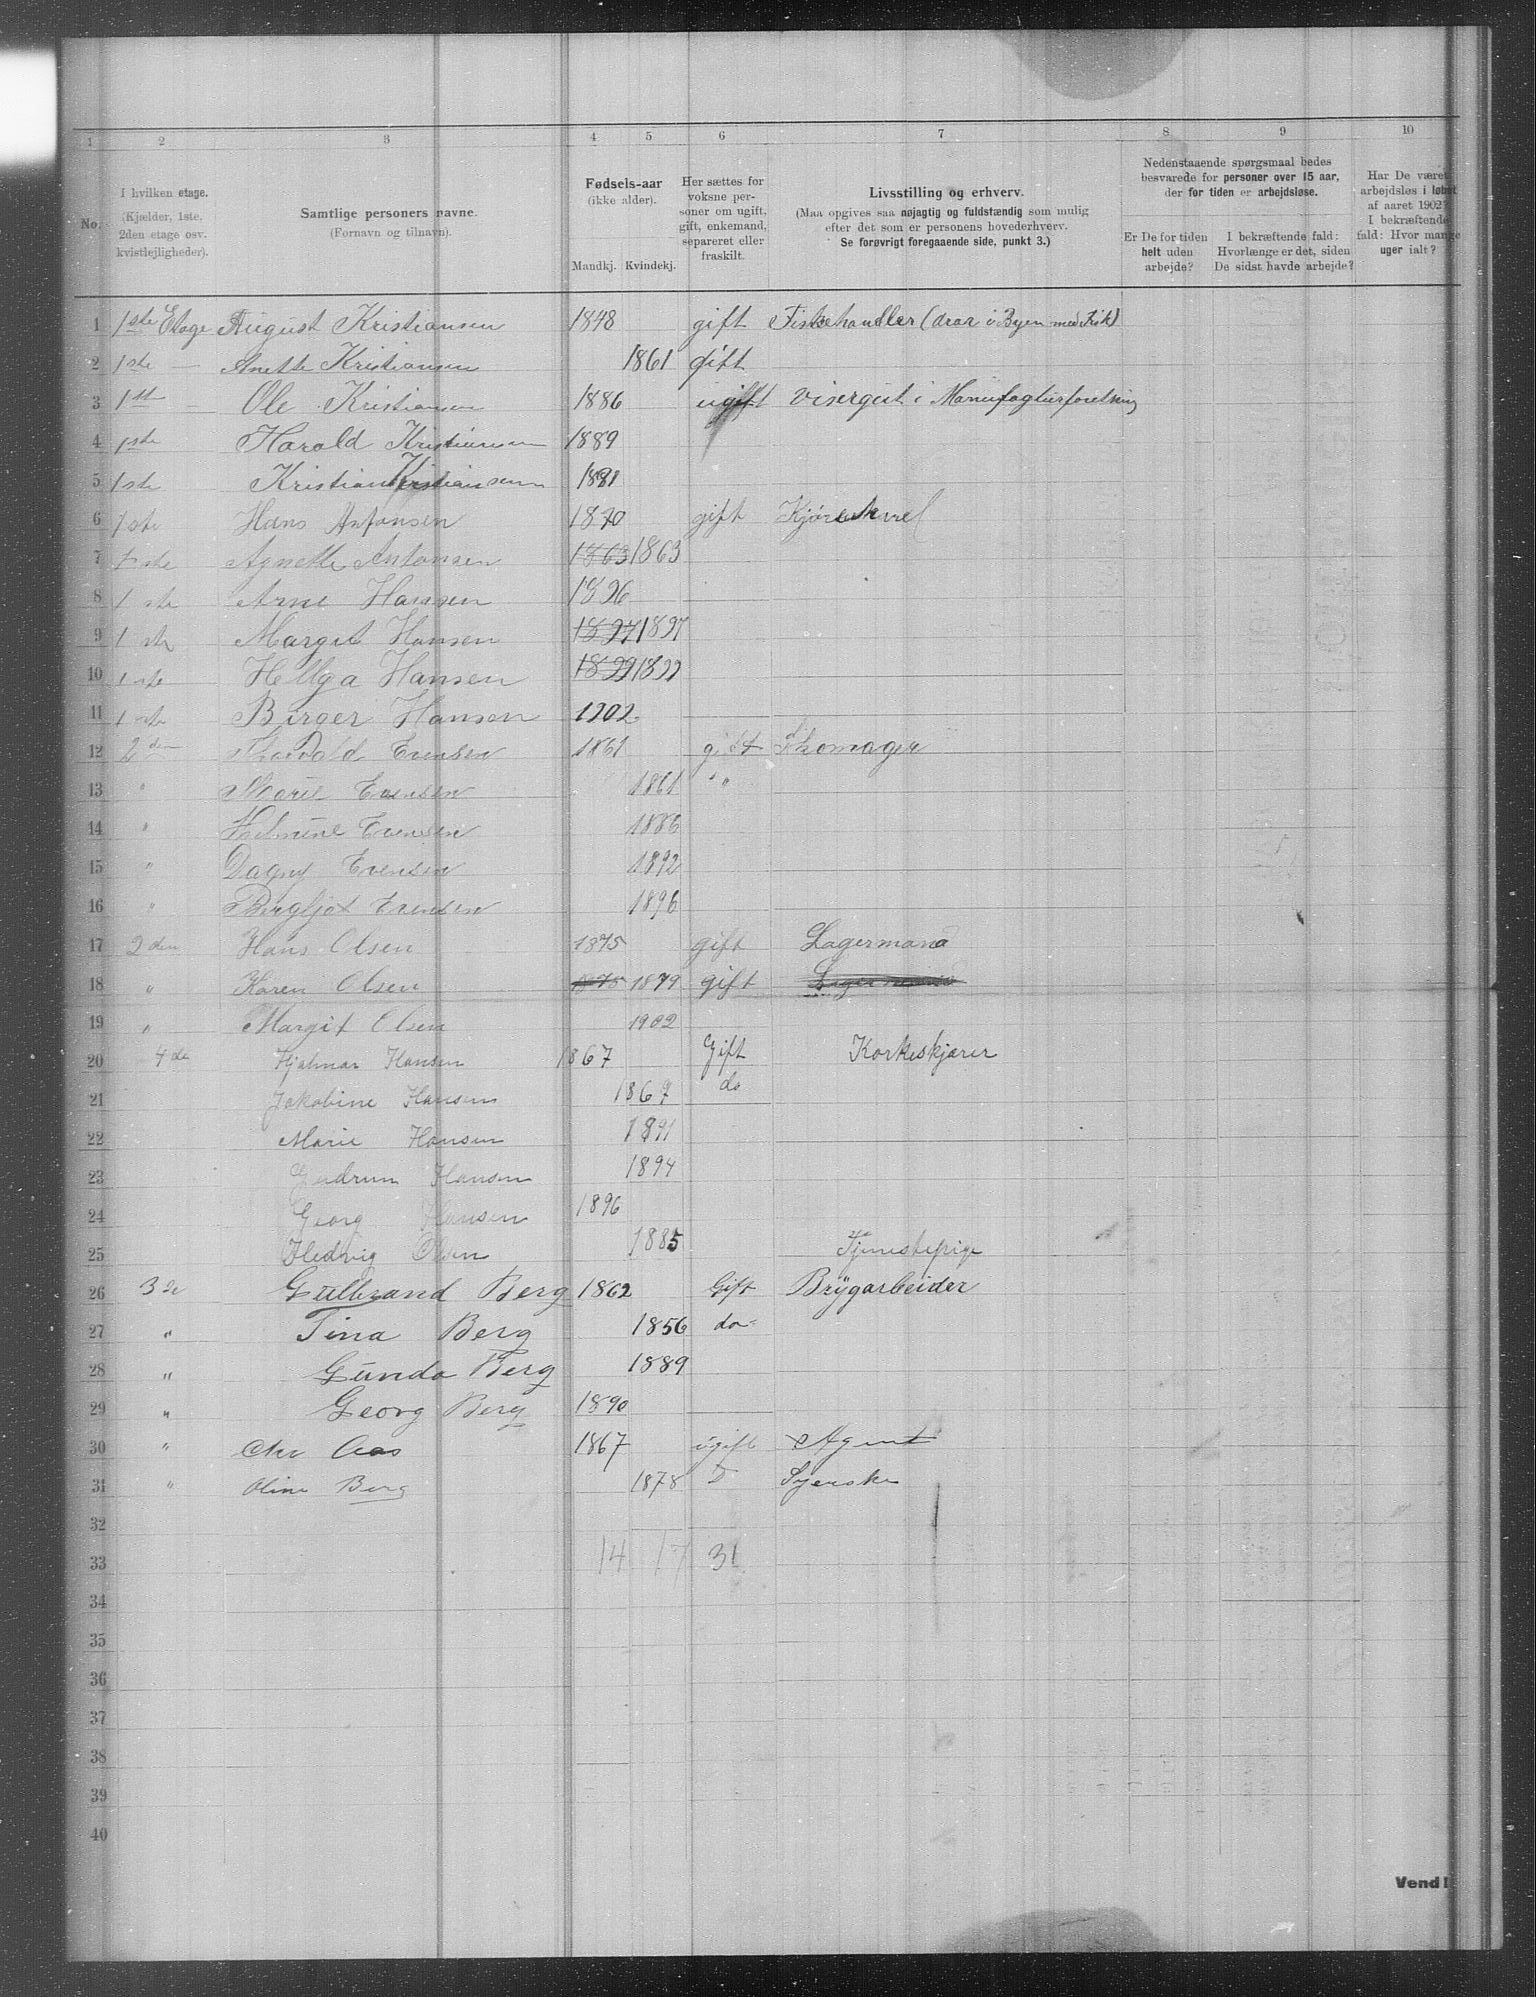 1 2 3 4 5 6 7 8 9 10
No.
I hvilken etage.
(Kjælder, 1ste.
2den etage osv.
kvistlejligheder).
Samtlige personers navne.
(Fornavn og tilnavn).
Fødsels-aar
(ikke alder).
Mandkj. Kvindekj.
Her sættes for
voksne per-
soner om ugift,
gift, enkemand,
separeret eller
fraskilt.
Livsstilling og erhverv.
(Maa opgives saa nøjagtig og fuldstændig som mulig
efter det som er personens hovederhverv.
Se forøvrigt foregaaende side, punkt 3.)
Nedenstaaende spørgsmaal bedes
besvarede for personer over 15 aar,
der for tiden er arbejdsløse.
Er De for tiden
helt uden
arbejde?
I bekræftende fald:
Hvorlænge er det, siden
De sidst havde arbejde?
Har De været
arbejdsløs i løbet
af aaret 1902?
I bekræftende
fald: Hvor mange
uger ialt?
1 1ste Etage August Kristiansen 1848 gift Fiskehandler (drar i Byen med Fisk)
2 1ste — Anette Kristiansen 1861 gift
3 1ste Ole Kristiansen 1886 ugift visergut i Manufagturforetning
4 1ste Harald Kristiansen 1889
5 1ste Kristian Kristiansen 1891
6 1ste Hans Antonsen 1870 gift Kjørekarel
7 1ste Agnette Antonsen 1863 1863
8 1ste Arne Hansen 1896
9 1ste Margit Hansen 1897 1897
10 1ste Hellga Hansen 1899 1899
11 1ste Birger Hansen 1902
12 2den Thorvald Evensen 1861 gift Skomager
13 " Marie Evensen 1861 "
14 " Helmine Evensen 1886
15 " Dagny Evensen 1892
16 " Bergljot Evensen 1896
17 2den Hans Olsen 1875 gift Lagermand
18 " Karen Olsen 1875 1879 gift Lagermand
19 " Margit Olsen 1902
20 4de Hjalmar Hansen 1867 Gift Korkeskjærer
21 Jakobine Hansen 1867 do
22 Marie Hansen 1891
23 Gudrun Hansen 1894
24 Georg Hansen 1896
25 Hedvig Olsen 1885 Tjenestepige
26 3de Gulbrand Berg 1862 Gift Brygarbeider
27 " Tina Berg 1856 do-
28 " Gunda Berg 1889
29 " Georg Berg 1890
30 " Chr Aas 1867 ugift Agent
31 " Oline Berg 1878 D Syerske
32
33 14 17 31
34
35
36
37
38
39
40
Vend!